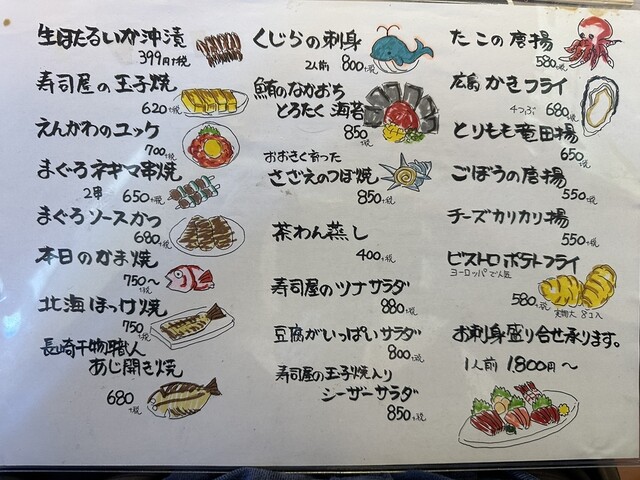 生ほたるいか沖漬
399円+税
寿司屋の玉子焼
620+税
えんがわのユッケ
700+税
まぐろネギマ串焼
2串 650+税
まぐろソースかつ
680+税
本日のかま焼
750〜+税
北海ほっけ焼
750+税
長崎干物職人
あじ開き焼
680+税
くじらの刺身
2人前 800+税
鮪のなかおち
とろたく海苔
850+税
おおさく育った
さざえのつぼ焼
850+税
茶わん蒸し
400+税
寿司屋のツナサラダ
880+税
豆腐がいっぱいサラダ
800+税
寿司屋の玉子焼入り
シーザーサラダ
850+税
たこの唐揚
580+税
広島かきフライ
4つぶ 680+税
とりもも竜田揚
650+税
ごぼうの唐揚
550+税
チーズカリカリ揚
550+税
ビストロポテトフライ
ヨーロッパで人気
580+税
実物大 8コ入
お刺身盛り合せ承ります。
1人前 1,800円〜